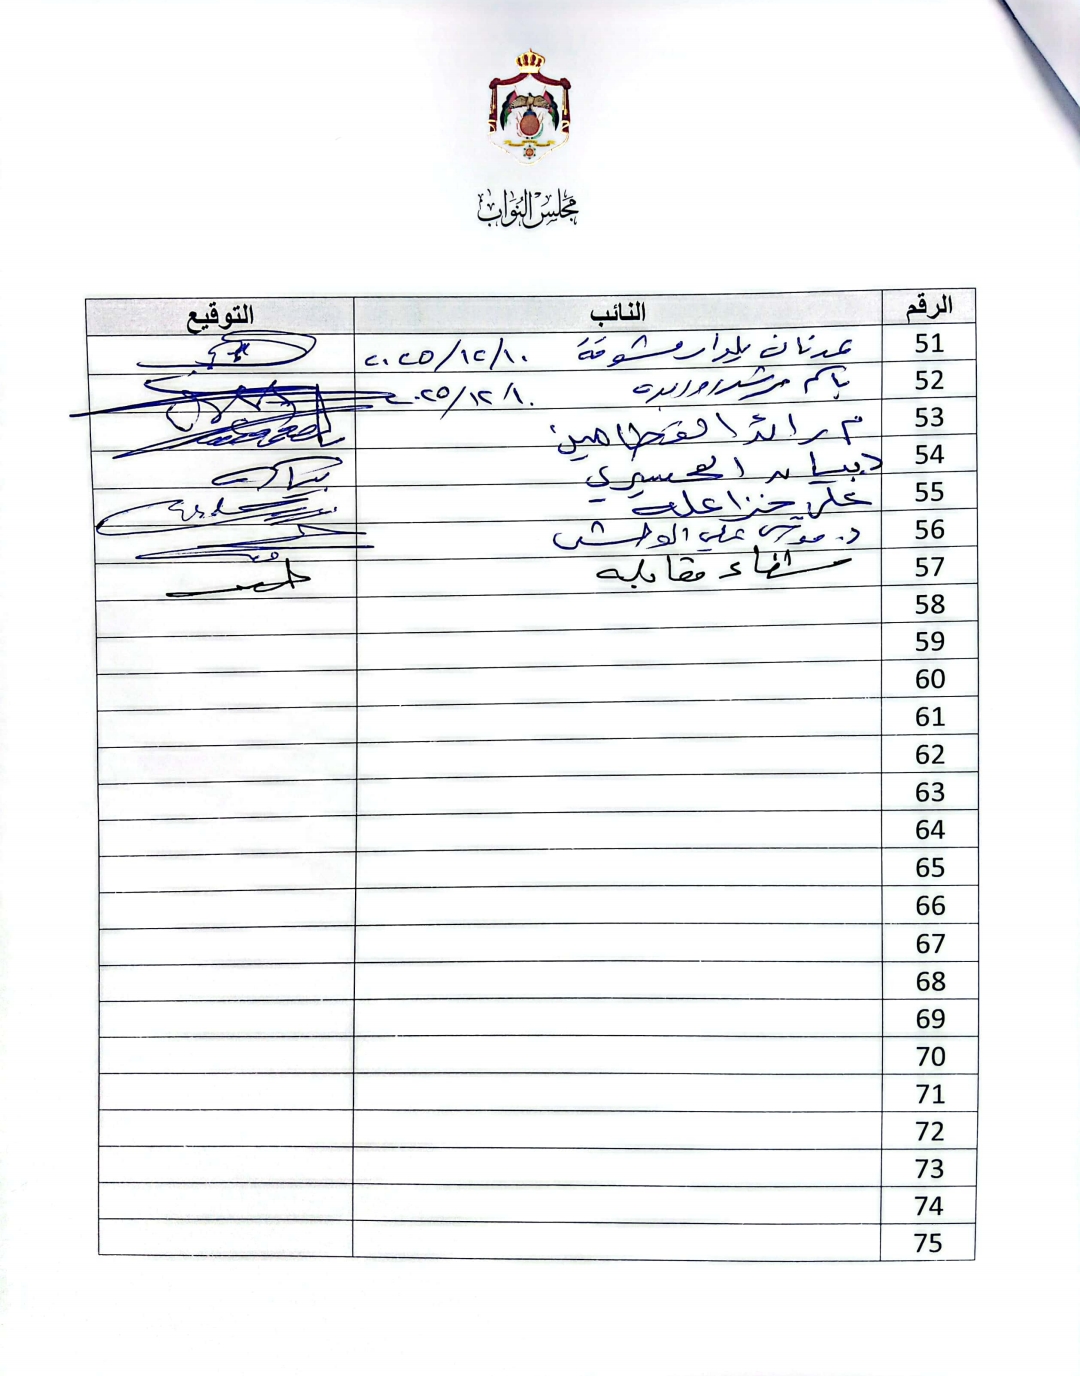 مجلس النواب
الرقم النائب التوقيع
51 عدنان يلدار مشوقة ٢٠٢٥/١٢/١٠
52 باسم مرشد روابده ٢٠٢٥/١٢/١٠
53 م. رائد القطامين
54 د. بيان المحسيري
55 علي خزاعله
56 د. موسى علي الوحش
57 شفاء مقابله
58
59
60
61
62
63
64
65
66
67
68
69
70
71
72
73
74
75